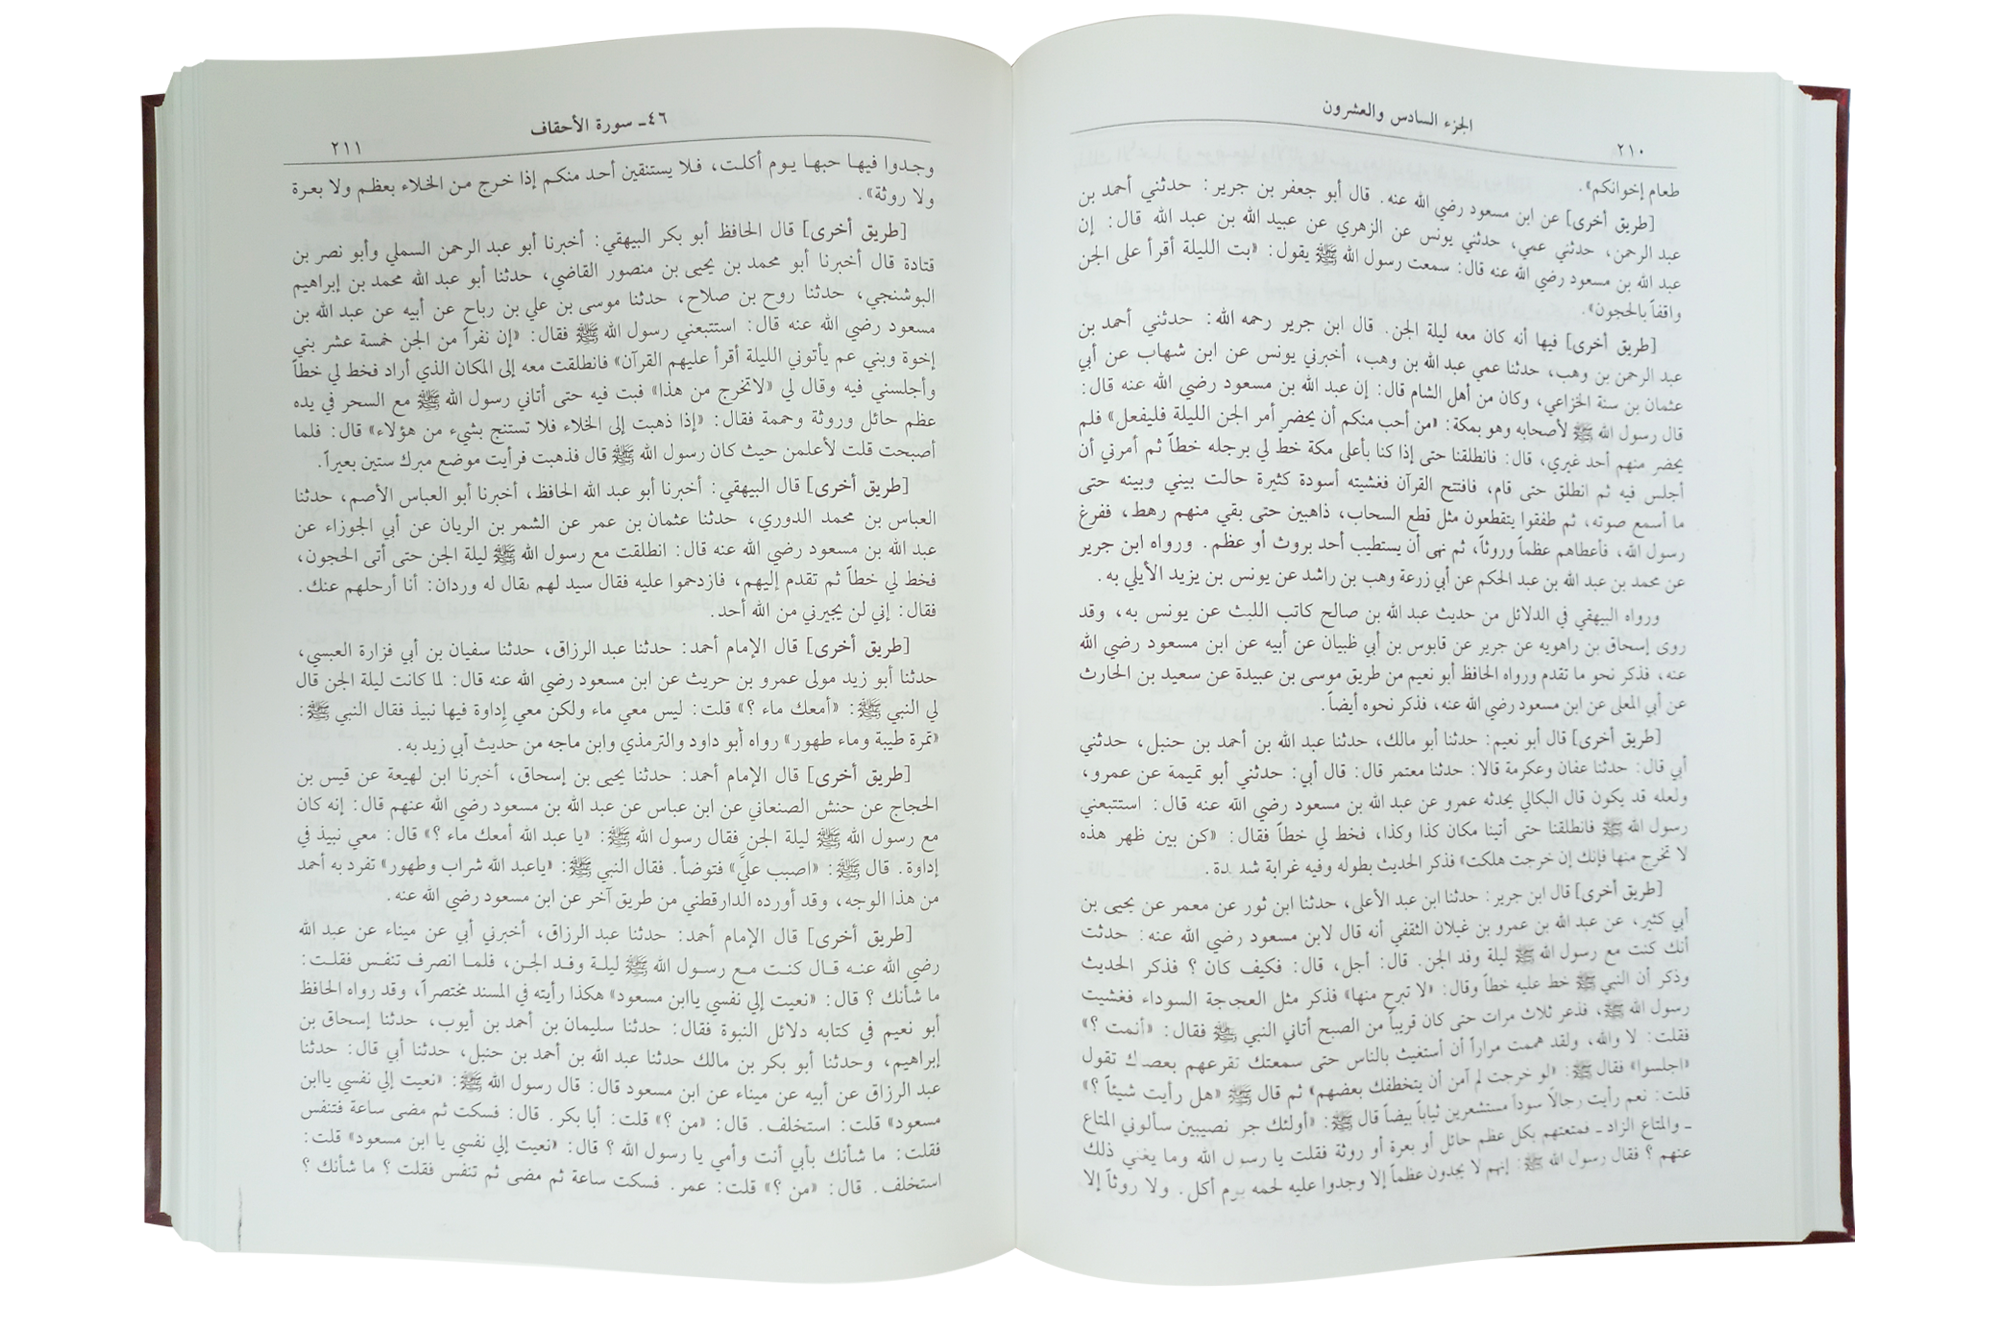 ٢١٠
الجزء السادس والعشرون
طعام إخوانكم».
[طريق أخرى] عن ابن مسعود رضي الله عنه. قال أبو جعفر بن جرير: حدثني أحمد بن
عبد الرحمن، حدثني عمي، حدثني يونس عن الزهري عن عبيد الله بن عبد الله قال: إن
عبد الله بن مسعود رضي الله عنه قال: سمعت رسول الله ﷺ يقول: «بت الليلة أقرأ على الجن
واقفاً بالحجون».
[طريق أخرى] فيها أنه كان معه ليلة الجن. قال ابن جرير رحمه الله: حدثني أحمد بن
عبد الرحمن بن وهب، حدثنا عمي عبد الله بن وهب، أخبرني يونس عن ابن شهاب عن أبي
عثمان بن سنة الخزاعي، وكان من أهل الشام قال: إن عبد الله بن مسعود رضي الله عنه قال:
قال رسول الله ﷺ لأصحابه وهو بمكة: «من أحب منكم أن يحضر أمر الجن الليلة فليفعل» فلم
يحضر منهم أحد غيري، قال: فانطلقنا حتى إذا كنا بأعلى مكة خط لي برجله خطاً ثم أمرني أن
أجلس فيه ثم انطلق حتى قام، فافتتح القرآن فغشيته أسودة كثيرة حالت بيني وبينه حتى
ما أسمع صوته، ثم طفقوا يتقطعون مثل قطع السحاب، ذاهبين حتى بقي منهم رهط، ففرغ
رسول الله، فأعطاهم عظماً وروثاً، ثم نهى أن يستطيب أحد بروث أو عظم. ورواه ابن جرير
عن محمد بن عبد الله بن عبد الحكم عن أبي زرعة وهب بن راشد عن يونس بن يزيد الأيلي به.
ورواه البيهقي في الدلائل من حديث عبد الله بن صالح كاتب الليث عن يونس به، وقد
روى إسحاق بن راهويه عن جرير عن قابوس بن أبي ظبيان عن أبيه عن ابن مسعود رضي الله
عنه، فذكر نحو ما تقدم ورواه الحافظ أبو نعيم من طريق موسى بن عبيدة عن سعيد بن الحارث
عن أبي المعلى عن ابن مسعود رضي الله عنه، فذكر نحوه أيضاً.
[طريق أخرى] قال أبو نعيم: حدثنا أبو مالك، حدثنا عبد الله بن أحمد بن حنبل، حدثني
أبي قال: حدثنا عفان وعكرمة قالا: حدثنا معتمر قال: قال أبي: حدثني أبو تميمة عن عمرو،
ولعله قد يكون قال البكالي يحدثه عمرو عن عبد الله بن مسعود رضي الله عنه قال: استتبعني
رسول الله ﷺ فانطلقنا حتى أتينا مكان كذا وكذا، فخط لي خطاً فقال: «كن بين ظهر هذه
لا تخرج منها فإنك إن خرجت هلكت» فذكر الحديث بطوله وفيه غرابة شديدة.
[طريق أخرى] قال ابن جرير: حدثنا ابن عبد الأعلى، حدثنا ابن ثور عن معمر عن يحيى بن
أبي كثير، عن عبد الله بن عمرو بن غيلان الثقفي أنه قال لابن مسعود رضي الله عنه: حدثت
أنك كنت مع رسول الله ﷺ ليلة وفد الجن. قال: أجل، قال: فكيف كان ؟ فذكر الحديث
وذكر أن النبي ﷺ خط عليه خطاً وقال: «لا تبرح منها» فذكر مثل العجاجة السوداء فغشيت
رسول الله ﷺ، فذعر ثلاث مرات حتى كان قريباً من الصبح أتاني النبي ﷺ فقال: «أنمت ؟»
فقلت: لا والله، ولقد هممت مراراً أن أستغيث بالناس حتى سمعتك تقرعهم بعصاك تقول
«اجلسوا» فقال ﷺ: «لو خرجت لم آمن أن يتخطفك بعضهم» ثم قال ﷺ «هل رأيت شيئاً ؟»
قلت: نعم رأيت رجالاً سوداً مستشعرين ثياباً بيضاً قال ﷺ: «أولئك جن نصيبين سألوني المتاع
ـ والمتاع الزاد ـ فمتعتهم بكل عظم حائل أو بعرة أو روثة فقلت يا رسول الله وما يغني ذلك
عنهم ؟ فقال رسول الله ﷺ: إنهم لا يجدون عظماً إلا وجدوا عليه لحمه يوم أكل. ولا روثاً إلا
٤٦ـ سورة الأحقاف
٢١١
وجدوا فيها حبها يوم أكلت، فلا يستنقين أحد منكم إذا خرج من الخلاء بعظم ولا بعرة
ولا روثة».
[طريق أخرى] قال الحافظ أبو بكر البيهقي: أخبرنا أبو عبد الرحمن السلمي وأبو نصر بن
قتادة قال أخبرنا أبو محمد بن يحيى بن منصور القاضي، حدثنا أبو عبد الله محمد بن إبراهيم
البوشنجي، حدثنا روح بن صلاح، حدثنا موسى بن علي بن رباح عن أبيه عن عبد الله بن
مسعود رضي الله عنه قال: استتبعني رسول الله ﷺ فقال: «إن نفراً من الجن خمسة عشر بني
إخوة وبني عم يأتوني الليلة أقرأ عليهم القرآن» فانطلقت معه إلى المكان الذي أراد فخط لي خطاً
وأجلسني فيه وقال لي «لاتخرج من هذا» فبت فيه حتى أتاني رسول الله ﷺ مع السحر في يده
عظم حائل وروثة وحممة فقال: «إذا ذهبت إلى الخلاء فلا تستنج بشيء من هؤلاء» قال: فلما
أصبحت قلت لأعلمن حيث كان رسول الله ﷺ قال فذهبت فرأيت موضع مبرك ستين بعيراً.
[طريق أخرى] قال البيهقي: أخبرنا أبو عبد الله الحافظ، أخبرنا أبو العباس الأصم، حدثنا
العباس بن محمد الدوري، حدثنا عثمان بن عمر عن الشمر بن الريان عن أبي الجوزاء عن
عبد الله بن مسعود رضي الله عنه قال: انطلقت مع رسول الله ﷺ ليلة الجن حتى أتى الحجون،
فخط لي خطاً ثم تقدم إليهم، فازدحموا عليه فقال سيد لهم يقال له وردان: أنا أرحلهم عنك.
فقال: إني لن يجيرني من الله أحد.
[طريق أخرى] قال الإمام أحمد: حدثنا عبد الرزاق، حدثنا سفيان بن أبي فزارة العبسي،
حدثنا أبو زيد مولى عمرو بن حريث عن ابن مسعود رضي الله عنه قال: لما كانت ليلة الجن قال
لي النبي ﷺ: «أمعك ماء ؟» قلت: ليس معي ماء ولكن معي إداوة فيها نبيذ فقال النبي ﷺ:
«تمرة طيبة وماء طهور» رواه أبو داود والترمذي وابن ماجه من حديث أبي زيد به.
[طريق أخرى] قال الإمام أحمد: حدثنا يحيى بن إسحاق، أخبرنا ابن لهيعة عن قيس بن
الحجاج عن حنش الصنعاني عن ابن عباس عن عبد الله بن مسعود رضي الله عنهم قال: إنه كان
مع رسول الله ﷺ ليلة الجن فقال رسول الله ﷺ: «يا عبد الله أمعك ماء ؟» قال: معي نبيذ في
إداوة. قال ﷺ: «اصبب عليَّ» فتوضأ. فقال النبي ﷺ: «ياعبد الله شراب وطهور» تفرد به أحمد
من هذا الوجه، وقد أورده الدارقطني من طريق آخر عن ابن مسعود رضي الله عنه.
[طريق أخرى] قال الإمام أحمد: حدثنا عبد الرزاق، أخبرني أبي عن ميناء عن عبد الله
رضي الله عنه قال كنت مع رسول الله ﷺ ليلة وفد الجن، فلما انصرف تنفس فقلت:
ما شأنك ؟ قال: «نعيت إلي نفسي ياابن مسعود» هكذا رأيته في المسند مختصراً، وقد رواه الحافظ
أبو نعيم في كتابه دلائل النبوة فقال: حدثنا سليمان بن أحمد بن أيوب، حدثنا إسحاق بن
إبراهيم، وحدثنا أبو بكر بن مالك حدثنا عبد الله بن أحمد بن حنبل، حدثنا أبي قال: حدثنا
عبد الرزاق عن أبيه عن ميناء عن ابن مسعود قال: قال رسول الله ﷺ: «نعيت إلي نفسي ياابن
مسعود» قلت: استخلف. قال: «من ؟» قلت: أبا بكر. قال: فسكت ثم مضى ساعة فتنفس
فقلت: ما شأنك بأبي أنت وأمي يا رسول الله ؟ قال: «نعيت إلي نفسي يا ابن مسعود» قلت:
استخلف. قال: «من ؟» قلت: عمر. فسكت ساعة ثم مضى ثم تنفس فقلت ؟ ما شأنك ؟